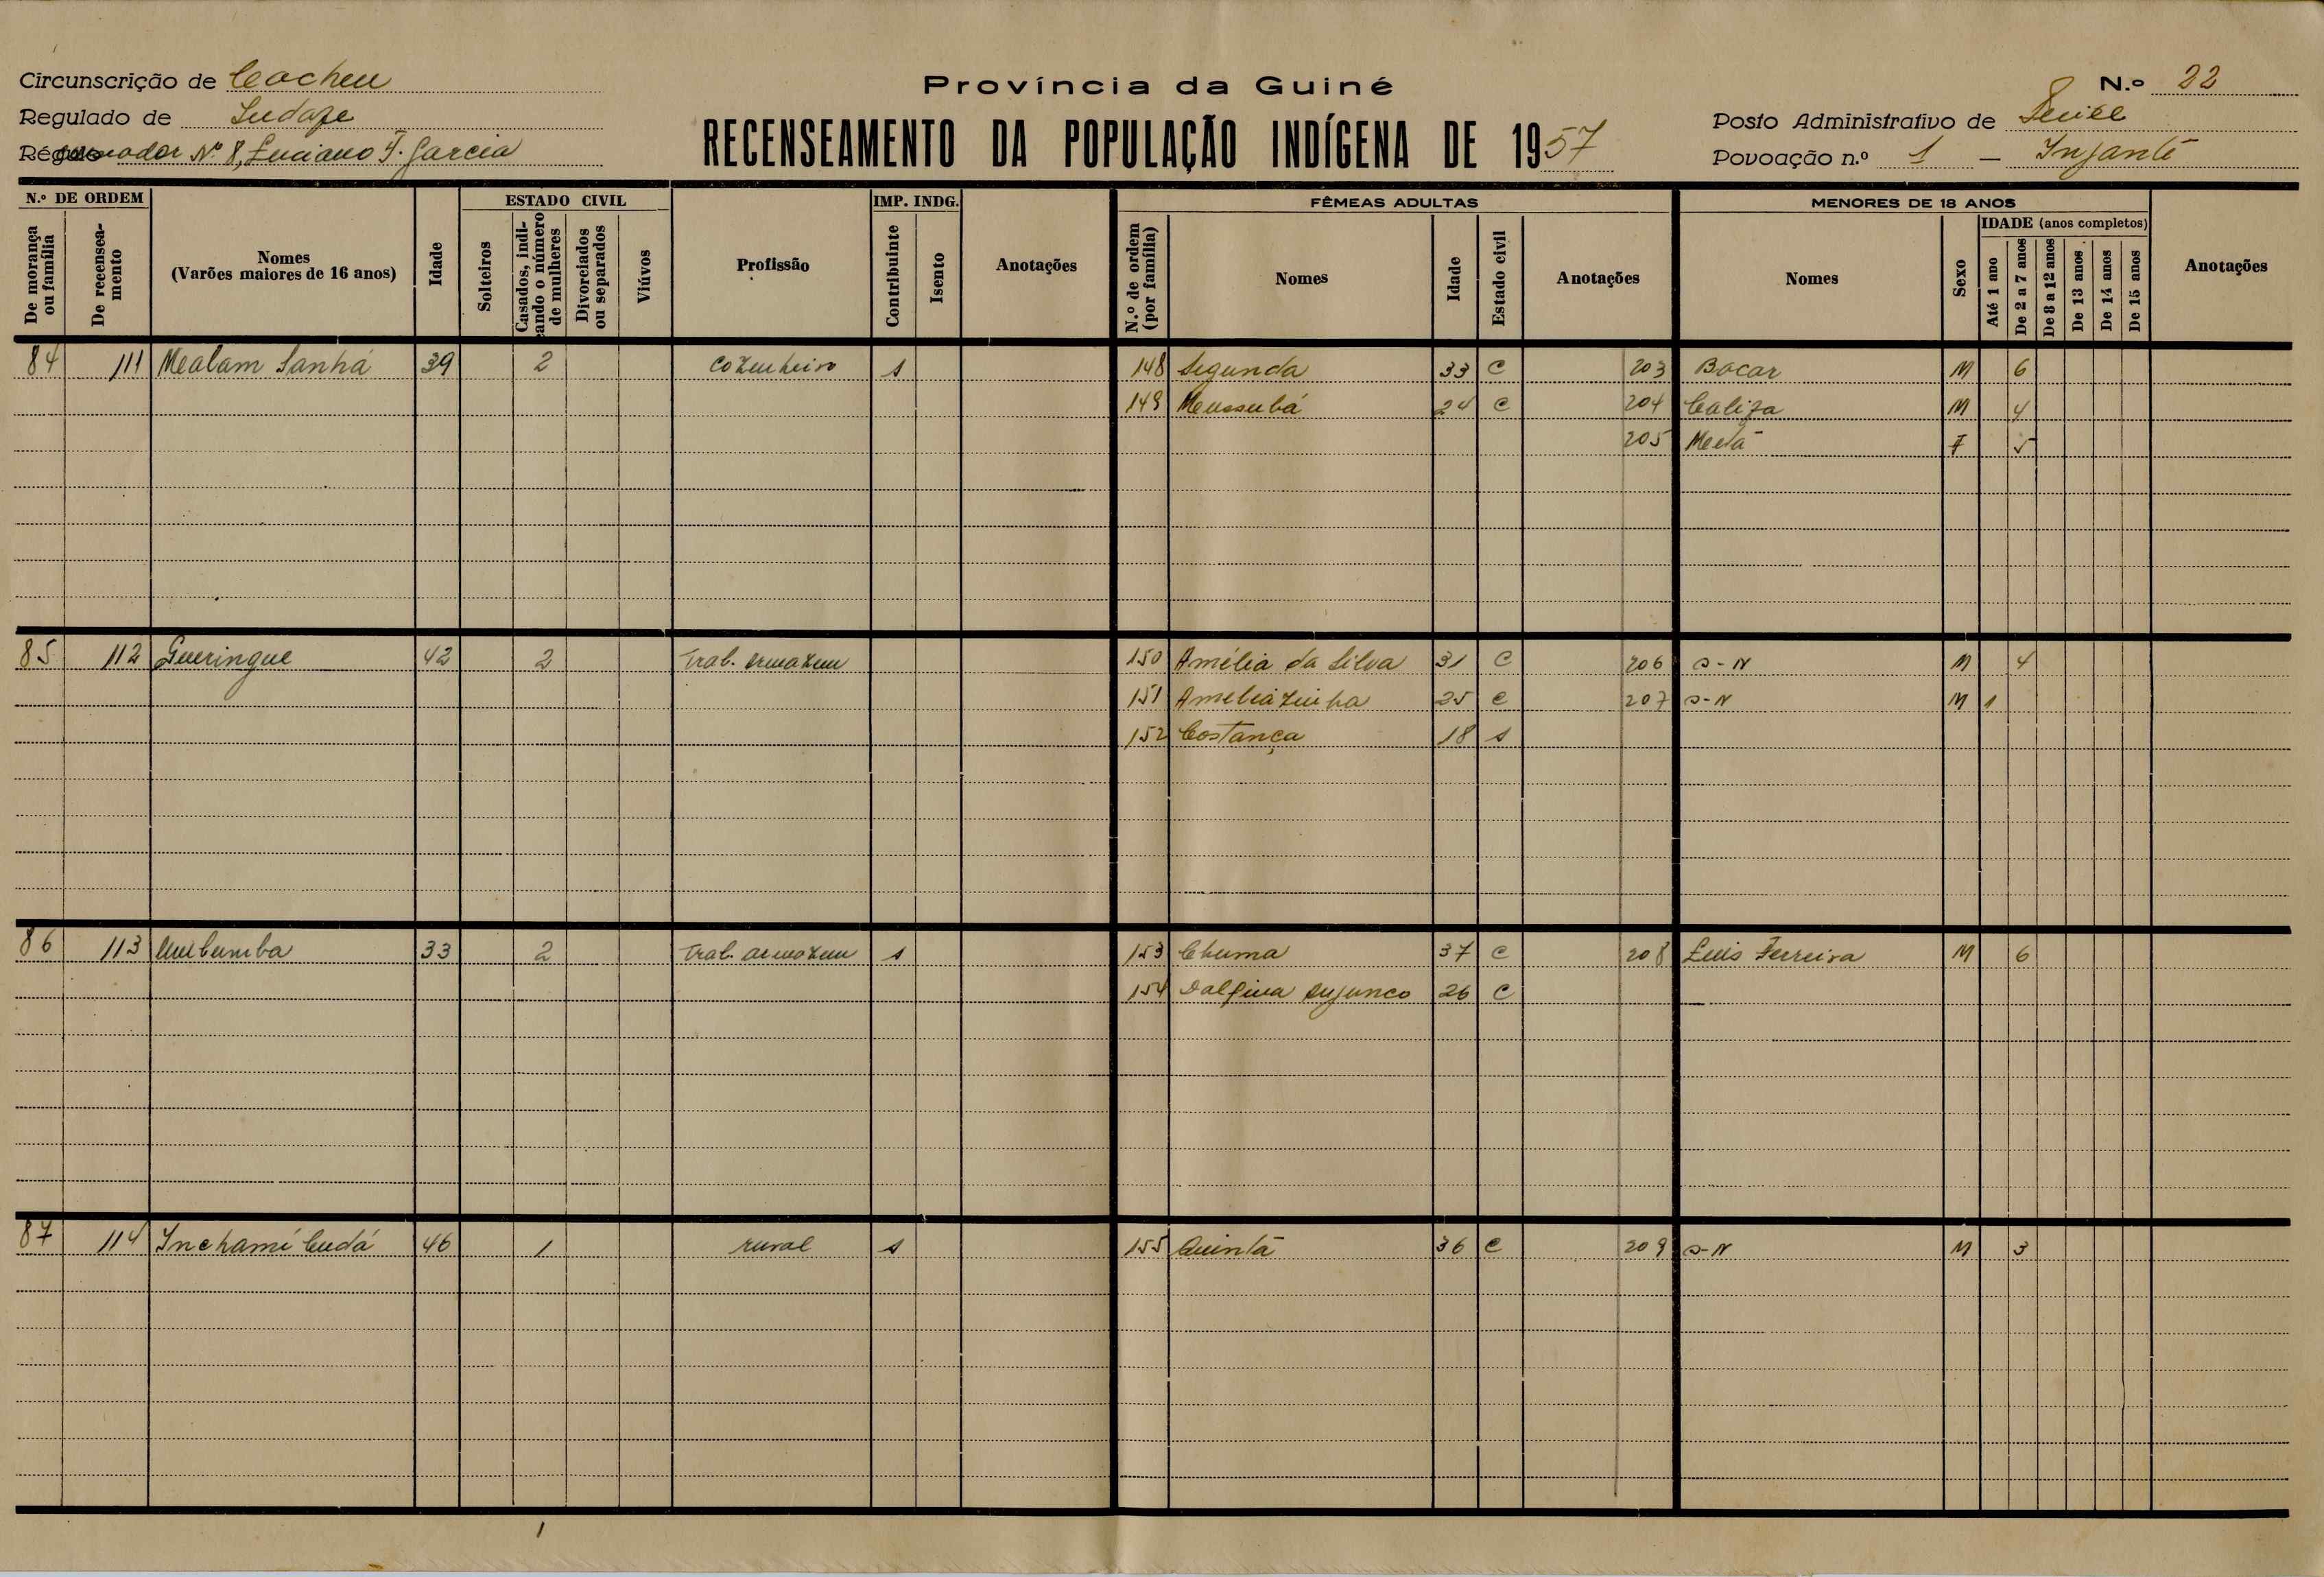 Circunscrição de Cacheu
Regulado de
Ré nador Nº 8, Luciano F. Garcia
Província da Guiné
RECENSEAMENTO DA POPULAÇÃO INDÍGENA DE 1957
N.º 22
Posto Administrativo de
Povoação n.º 1 –
N.º DE ORDEM
De morança ou família
De recenseamento
Nomes
(Varões maiores de 16 anos)
Idade
ESTADO CIVIL
Solteiros
Casados, indicando o número de mulheres
Divorciados ou separados
Viúvos
Profissão
IMP. INDG.
Contribuinte
Isento
Anotações
FÊMEAS ADULTAS
N.º de ordem (por família)
Nomes
Idade
Estado civil
Anotações
MENORES DE 18 ANOS
Nomes
Sexo
IDADE (anos completos)
Até 1 ano
De 2 a 7 anos
De 8 a 12 anos
De 13 anos
De 14 anos
De 15 anos
Anotações
84 111 Mealam Sanhá 39 2 cozenheiro s 148 Segunda 33 C 203 Bacar M 6
149 Meussubá 24 C 204 Califa M 4
205 F 5
85 112 Gueringue 42 2 Trab. armazem 150 Amélia da Silva 31 C 206 S-N M 4
151 Améliazinha 25 C 207 S-N M 1
152 Costança 18 s
86 113 33 2 Trab. armazem s 153 Chuma 37 C 208 Luis Ferreira M 6
154 26 C
87 114 Inchamé Cudá 46 1 rural s 155 Quintã 36 C 209 S-N M 3